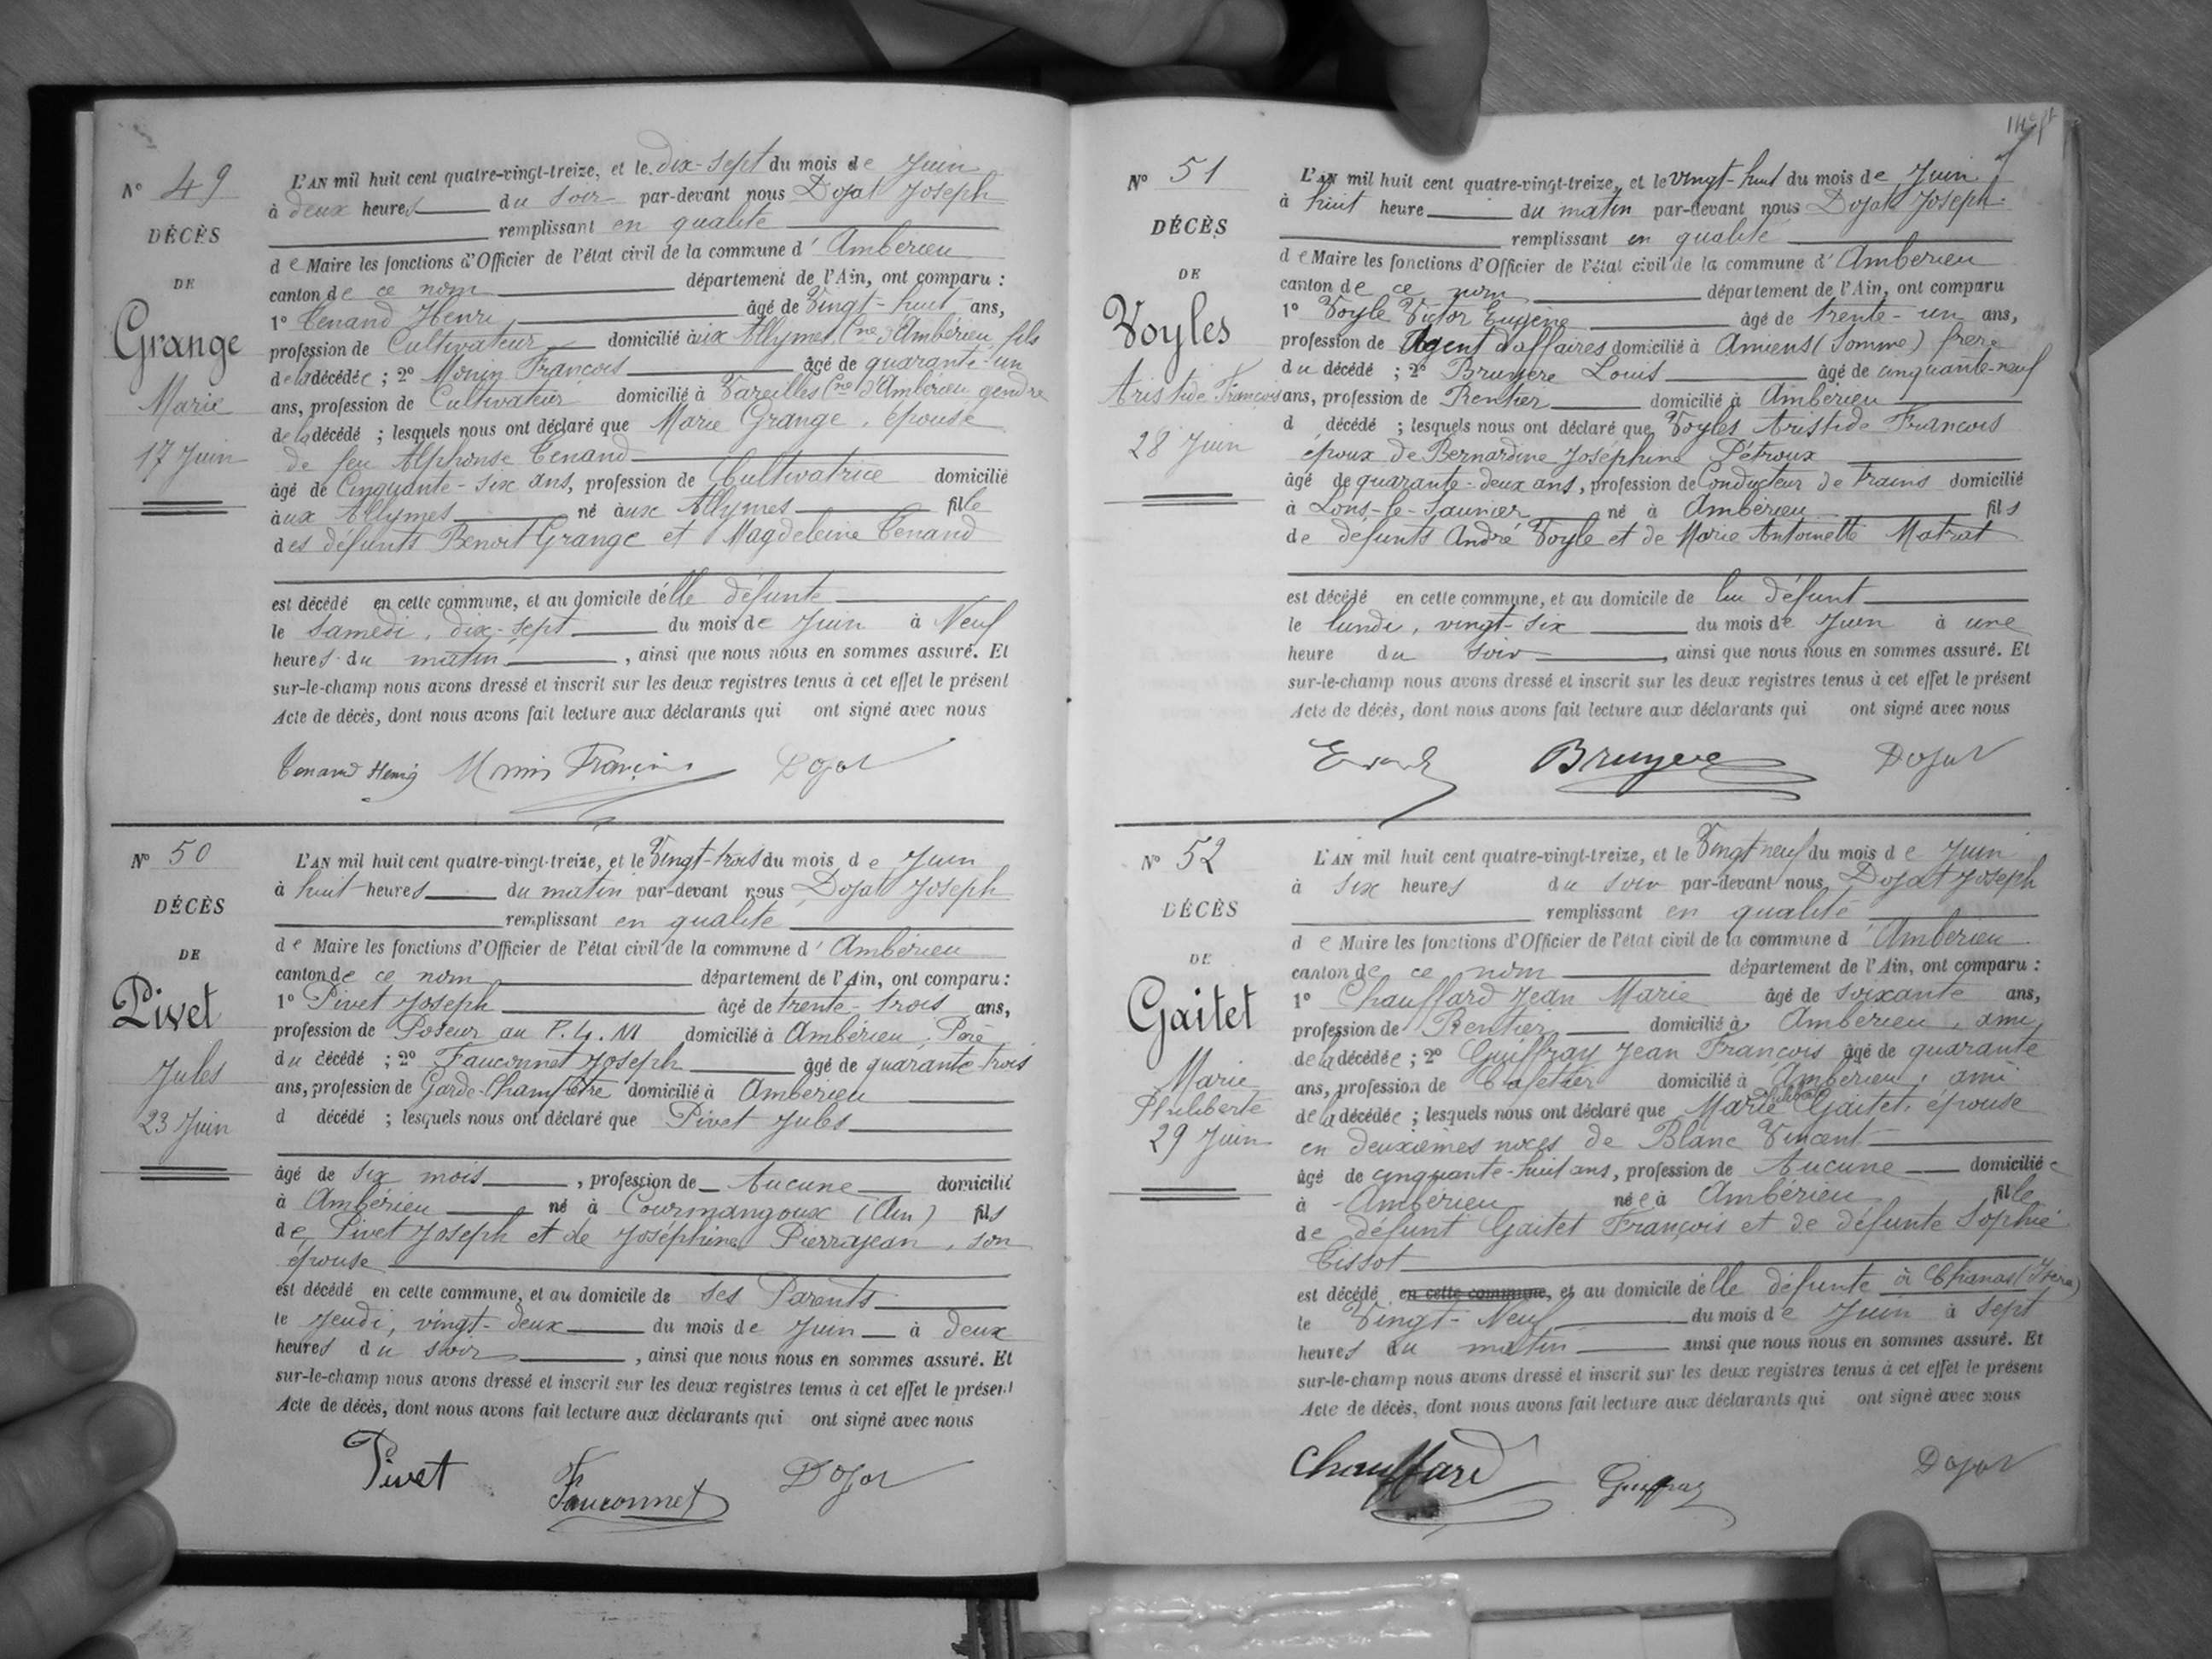 N° 49
DÉCÈS
DE
Grange
Marie
17 Juin
L'AN mil huit cent quatre-vingt-treize, et le dix-sept du mois de Juin
à deux heures du soir par-devant nous Dojat Joseph
remplissant en qualité
de Maire les fonctions d'Officier de l'état civil de la commune d'Ambérieu
canton de ce nom département de l'Ain, ont comparu :
1° Tenand Henri âgé de Vingt-huit ans,
profession de Cultivateur domicilié aux Allymes Cne d'Ambérieu, fils
de la décédée ; 2° Monin François âgé de quarante-un
ans, profession de Cultivateur domicilié à Vareilles Cne d'Ambérieu gendre
de la décédé ; lesquels nous ont déclaré que Marie Grange, épouse
de feu Alphonse Tenand
âgé de Cinquante-six ans, profession de Cultivatrice domicilié
aux Allymes né aux Allymes fille
des défunts Benoit Grange et Magdeleine Tenand
est décédé en cette commune, et au domicile d'elle défunte
le Samedi, dix-sept du mois de Juin à Neuf
heures du matin, ainsi que nous nous en sommes assuré. Et
sur-le-champ nous avons dressé et inscrit sur les deux registres tenus à cet effet le présent
Acte de décès, dont nous avons fait lecture aux déclarants qui ont signé avec nous
Tenand Henri Monin François Dojat
N° 50
DÉCÈS
DE
Pivet
Jules
23 Juin
L'AN mil huit cent quatre-vingt-treize, et le Vingt-trois du mois de Juin
à huit heures du matin par-devant nous Dojat Joseph
remplissant en qualité
de Maire les fonctions d'Officier de l'état civil de la commune d'Ambérieu
canton de ce nom département de l'Ain, ont comparu :
1° Pivet Joseph âgé de trente-trois ans,
profession de Poseur au P. L. M domicilié à Ambérieu, Père
du décédé ; 2° Fauconnet Joseph âgé de quarante-trois
ans, profession de Garde-Champêtre domicilié à Ambérieu
d décédé ; lesquels nous ont déclaré que Pivet Jules
âgé de six mois, profession de Aucune domicilié
à Ambérieu né à Courmangoux (Ain) fils
de Pivet Joseph et de Joséphine Pierrajean, son
épouse
est décédé en cette commune, et au domicile de ses Parents
le Jeudi, vingt-deux du mois de Juin à deux
heures du soir, ainsi que nous nous en sommes assuré. Et
sur-le-champ nous avons dressé et inscrit sur les deux registres tenus à cet effet le présent
Acte de décès, dont nous avons fait lecture aux déclarants qui ont signé avec nous
Pivet Fauconnet Dojat
N° 51
DÉCÈS
DE
Voyles
Aristide François
28 Juin
L'AN mil huit cent quatre-vingt-treize, et le Vingt-huit du mois de Juin
à huit heure du matin par-devant nous Dojat Joseph
remplissant en qualité
de Maire les fonctions d'Officier de l'état civil de la commune d'Ambérieu
canton de ce nom département de l'Ain, ont comparu
1° Voyle Victor Eugène âgé de trente-un ans,
profession de Agent d'affaires domicilié à Amiens (Somme) frère
du décédé ; 2° Bruyère Louis âgé de cinquante-neuf
ans, profession de Rentier domicilié à Ambérieu
d décédé ; lesquels nous ont déclaré que Voyles Aristide François
époux de Bernardine Joséphine Pétroux
âgé de quarante-deux ans, profession de Conducteur de Trains domicilié
à Lons-le-Saunier né à Ambérieu fils
de défunts André Voyle et de Marie Antoinette Matrat
est décédé en cette commune, et au domicile de lui défunt
le lundi, vingt-six du mois de Juin à une
heure du soir, ainsi que nous nous en sommes assuré. Et
sur-le-champ nous avons dressé et inscrit sur les deux registres tenus à cet effet le présent
Acte de décès, dont nous avons fait lecture aux déclarants qui ont signé avec nous
Bruyere Dojat
N° 52
DÉCÈS
DE
Gaitet
Marie
Philiberte
29 Juin
L'AN mil huit cent quatre-vingt-treize, et le Vingt neuf du mois de Juin
à six heures du soir par-devant nous Dojat Joseph
remplissant en qualité
de Maire les fonctions d'Officier de l'état civil de la commune d'Ambérieu
canton de ce nom département de l'Ain, ont comparu :
1° Chauffard Jean Marie âgé de soixante ans,
profession de Rentier domicilié à Ambérieu, ami
de la décédée ; 2° Guiffray Jean François âgé de quarante
ans, profession de Cafetier domicilié à Ambérieu, ami
de la décédée ; lesquels nous ont déclaré que Marie Philiberte Gaitet, épouse
en deuxièmes noces de Blanc Vincent
âgé de cinquante-huit ans, profession de Aucune domiciliée
à Ambérieu née à Ambérieu fille
de défunt Gaitet François et de défunte Sophie
Tissot
est décédé en cette commune, et au domicile d'elle défunte à Chanas (Isère)
le Vingt-Neuf du mois de Juin à sept
heures du matin ainsi que nous nous en sommes assuré. Et
sur-le-champ nous avons dressé et inscrit sur les deux registres tenus à cet effet le présent
Acte de décès, dont nous avons fait lecture aux déclarants qui ont signé avec nous
Chauffard Guiffray Dojat